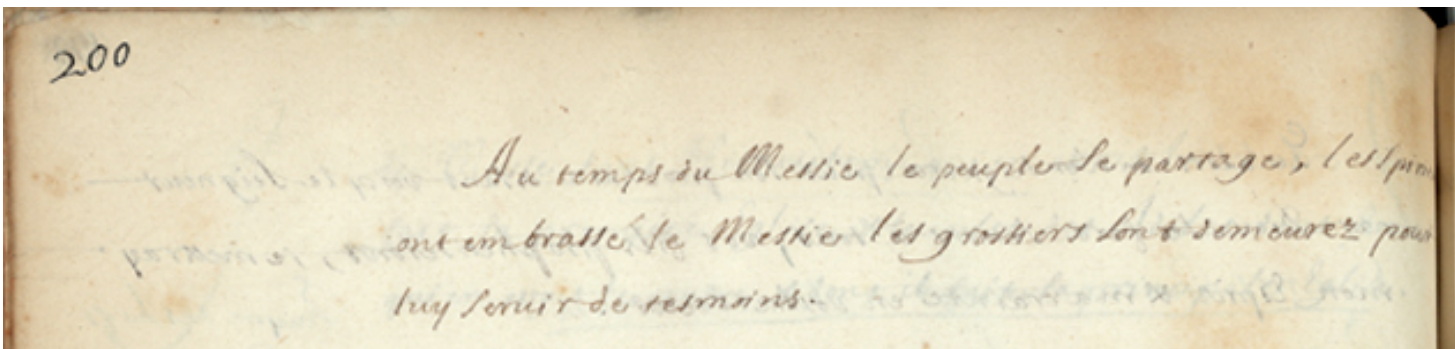 200
Au temps du Messie le peuple se partage, les
ont embrassé le Messie les grossiers sont demeurez pour
luy seruir de tesmoins.